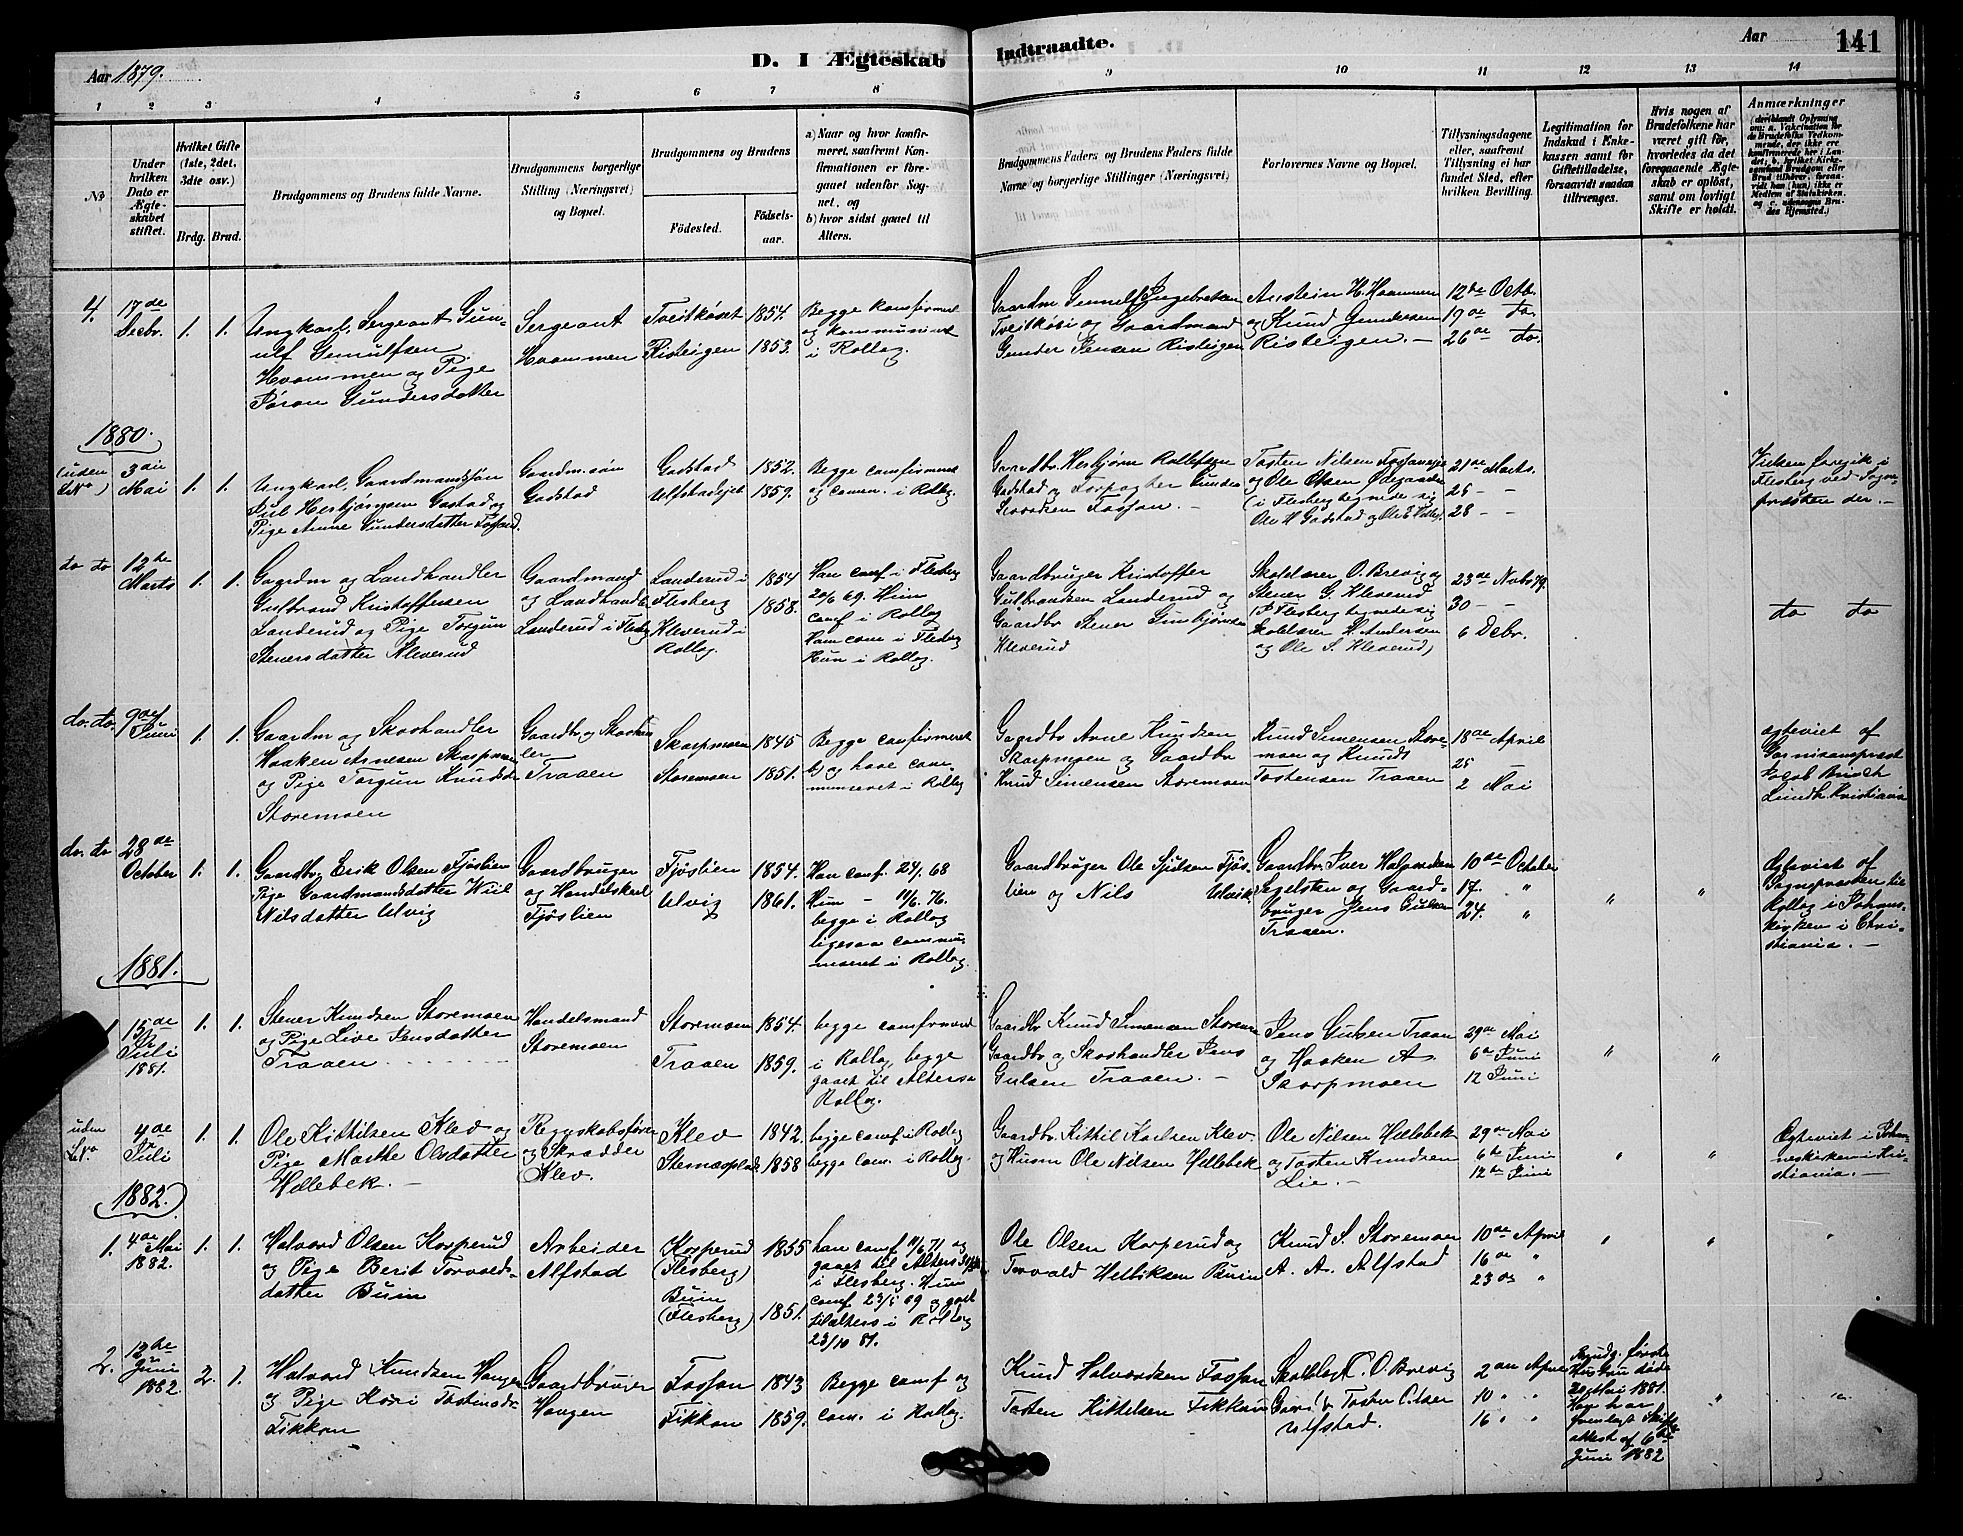 Aar 1879.
D. I Ægteskab Indtraadte.
Aar 141
1 2 3 4 5 6 7 8 9 10 11 12 13 14
No
Under hvilken Dato er Ægteskabet stiftet.
Hvilket Gifte (1ste, 2det, 3die osv.)
Brdg. Brud.
Brudgommens og Brudens fulde Navne.
Brudgommens borgerlige Stilling (Næringsvei) og Bopæl.
Brudgommens og Brudens
Fødested.
Fødselsaar.
a) Naar og hvor konfirmeret, saafremt Konfirmationen er foregaaet udenfor Sognet, og
b) hvor sidst gaaet til Alters.
Brudgommens Faders og Brudens Faders fulde Navne og borgerlige Stillinger (Næringsvei)
Forlovernes Navne og Bopæl.
Tillysningsdagene eller, saafremt Tillysning ei har fundet Sted, efter hvilken Bevilling.
Legitimation for Indskud i Enkekassen samt for Giftetilladelse, forsaavidt saadan tiltrænges.
Hvis nogen af Brudefolkene har været gift før, hvorledes da det foregaaende Ægteskab er opløst, samt om lovligt Skifte er holdt.
Anmærkninger
4. 17de Decbr. 1. 1.
Ungkarl, Sergeant Gunulf Gunulfsen Hvammen og Pige Jøran Gundersdatter
Sergeant Hvammen
Tveitkaset Risteigen
1854. 1853.
Begge konfirmeret og kommuniceret i Rollag.
Gaardm. Gunulf Ingebretsen Tveitkåsi og Gaardmand Gunder Jensen Risteigen
Anstein H. Haammen og Knud Gundersen Risteigen. —
12te Octb. 19de do. 26de do.
1880.
(uden No) 3die Mai 1. 1.
Ungkarl, Gaardmandssøn Juul Herbjørnsen Gastad og Pige Anne Gundersdatter Fossan.
Gaardm. søn Gadstad
Gadstad Ulfstadejet
1852. 1859.
Begge comfirmeret og comm. i Rollag.
Gaardbr. Herbjørn Rollefsen Gadstad og Forpagter Gunder Fossan. —
Tosten Nilsen og Ole Olsen Ødegaarden (i Flesberg tegnede sig Ole H Gadstad og
21de Marts. 25 - - 28 - -
Vielsen foregik i Flesberg ved Sognepræsten der. —
do do 12te Marts 1. 1.
Gaardm og Landhandler Gulbrand Kristoffersen Landerud og Pige Torgun Stenersdatter Kleverud
Gaardmand og Landhandler Landerud i Flesberg
Landerud i Flesberg Kleverud i Rollag.
1854 1858.
Han conf. i Flesberg 20/6 69. Hun conf. i Rollag Han com. i Flesberg Hun i Rollag.
Gaardbruger Kristoffer Gulbrandsen Landerud og Gaardbr Stener Gunbjørnsen Kleverud
Skolelærer O. Brevig og Stener G. Kleverud (I Flesberg tegnede sig Skolelærer H. Andersen og Ole S. Kleverud)
23de Novbr 79. 30 - - 6 Decbr.
do do
do. do. 9de Juni 1. 1.
Gaardm og Skoshandler Haaken Arnesen Skarpmoen og Pige Torgun Knudsd. Storemoen
Gaardbr og Skoshandler Traaen
Skarpmoen Storemoen
1845 1851.
Begge comfirmeret og have communiceret i Rollag
Gaardbr Arne Knudsen Skarpmoen og Gaardbr Knud Simensen Storemoen
Knud Simensen Storemoen og Knudt Tostensen Traaen
18de April 25 2 Mai
ægteviet af Garnisonsprest Jacob Lindh. Kristiania
do. do 28de October 1. 1.
Gaardbr. Erik Olsen Fjøslien Pige Gaardmandsdatter Nilsdatter Ulvig
Gaardbruger og Handelskarl Fjøslien
Fjøslien Ulvig
1854. 1861.
Han conf. 24/. 68 Hun — 11/6. 76. begge i Rollag ligesaa communiceret i Rollag.
Gaardbruger Ole Fjøslien og Nils Ulvik.
Gaardbr. Iver Segelsten og Gaardbruger Jens Gulsen Traaen.
10de October 17. " 24. "
" "
Ægteviet af Sognepræsten til Rollag i Johanskirken i Christiania. —
1881.
1 15de Juli 1881. 1. 1.
Stener Knudsen Storemoen og Pige Live Jensdatter Traaen
Handelsmand Storemoen
Storemoen Traaen
1854. 1859.
begge comfirmeret i Rollag, begge gaaet til Alters i Rollag.
Gaardbr Knud Simensen Storem Gaardbr og Skoshandler Jens Gulsen Traaen. —
Jens Gulsen Traaen og Haaken A. Skarpmoen
29de Mai 6te Juni 12 Juni
" "
uden No. 4de Juli 1. 1.
Ole Kittilsen Klev og Pige Marthe Olsdatter Hellebek. —
Regnskabsfører og Skrædder Klev.
Klev
1842. 1858
begge conf i Rollag begge com. i Rollag.
Gaardbr Kittil Karlsen Klev og Husm Ole Nilsen Hellebek
Ole Nilsen Hellebek og Tosten Knudsen Lie. —
29de Mai 6te Juni 12te Juni
" "
Ægteviet i Johanneskirken i Kristiania. —
1882.
1. 4de Mai 1882. 1. 1.
Halvord Olsen Korperud og Pige Berit Torvaldsdatter Buin
Arbeider Alfstad
Korperud (Flesberg) Buin (Flesberg)
1855 1851.
han conf 11/6 71 og gaaet til Alters i Flesberg. Hun conf 23/5 69 og gaaet til Alters i Rollag 23/10 81.
Ole Olsen Korperud og Torvald Helliksen Buin
Knud S. Storemoen A. A. Alfstad
10de April 16de " 23de "
" " "
2. 12te Juni 1882. 2. 1.
Halvord Knudsen Haugen og Pige Kari Tostensdr. Fikkan
Gaardbruger Haugen
Fossan Fikkan
1843 1859.
Begge conf og com. i Rollag.
Knud Halvordsen Fossan Tosten Kittelsen Fikkan
O. Brevig Tosten Olsen Ulfstad.
2den April 10 " " 16 " "
Brudg. første Hustru døde 20 Mai 1881. Han har fremlagt Skifteattest af 6te Juni 1882
" "